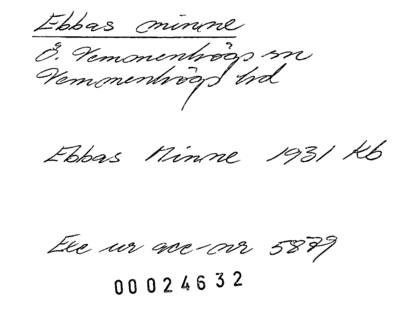 Ebbas minne
Ö. Vemmenhögs sn
Vemmenhögs hd
Ebbas Minne 1931 Kb
Exc ur acc-nr 5879
00024632